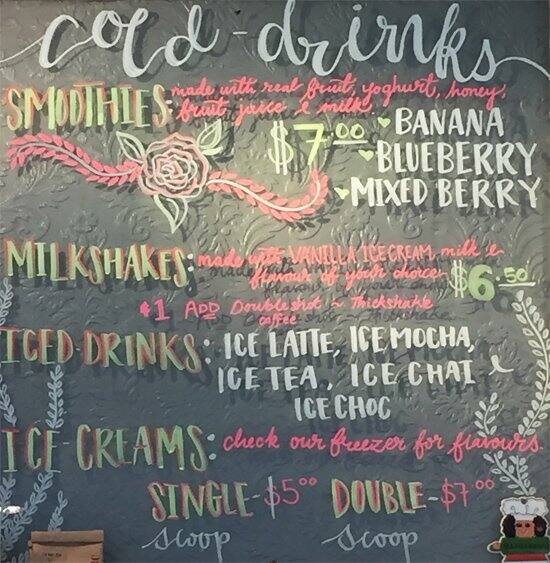 cold-drinks
SMOOTHIES: made with real fruit, yoghurt, honey,
fruit juice & milk.
$7.00
BANANA
BLUEBERRY
MIXED BERRY
MILKSHAKES: made with VANILLA ICECREAM, milk &
flavour of your choice $6.50
$1 ADD Doubleshot ~ Thickshake
coffee
ICED DRINKS: ICE LATTE, ICE MOCHA,
ICE TEA, ICE CHAI &
ICE CHOC
ICE-CREAMS: check our freezer for flavours.
SINGLE-$5.00 DOUBLE-$7.00
scoop scoop